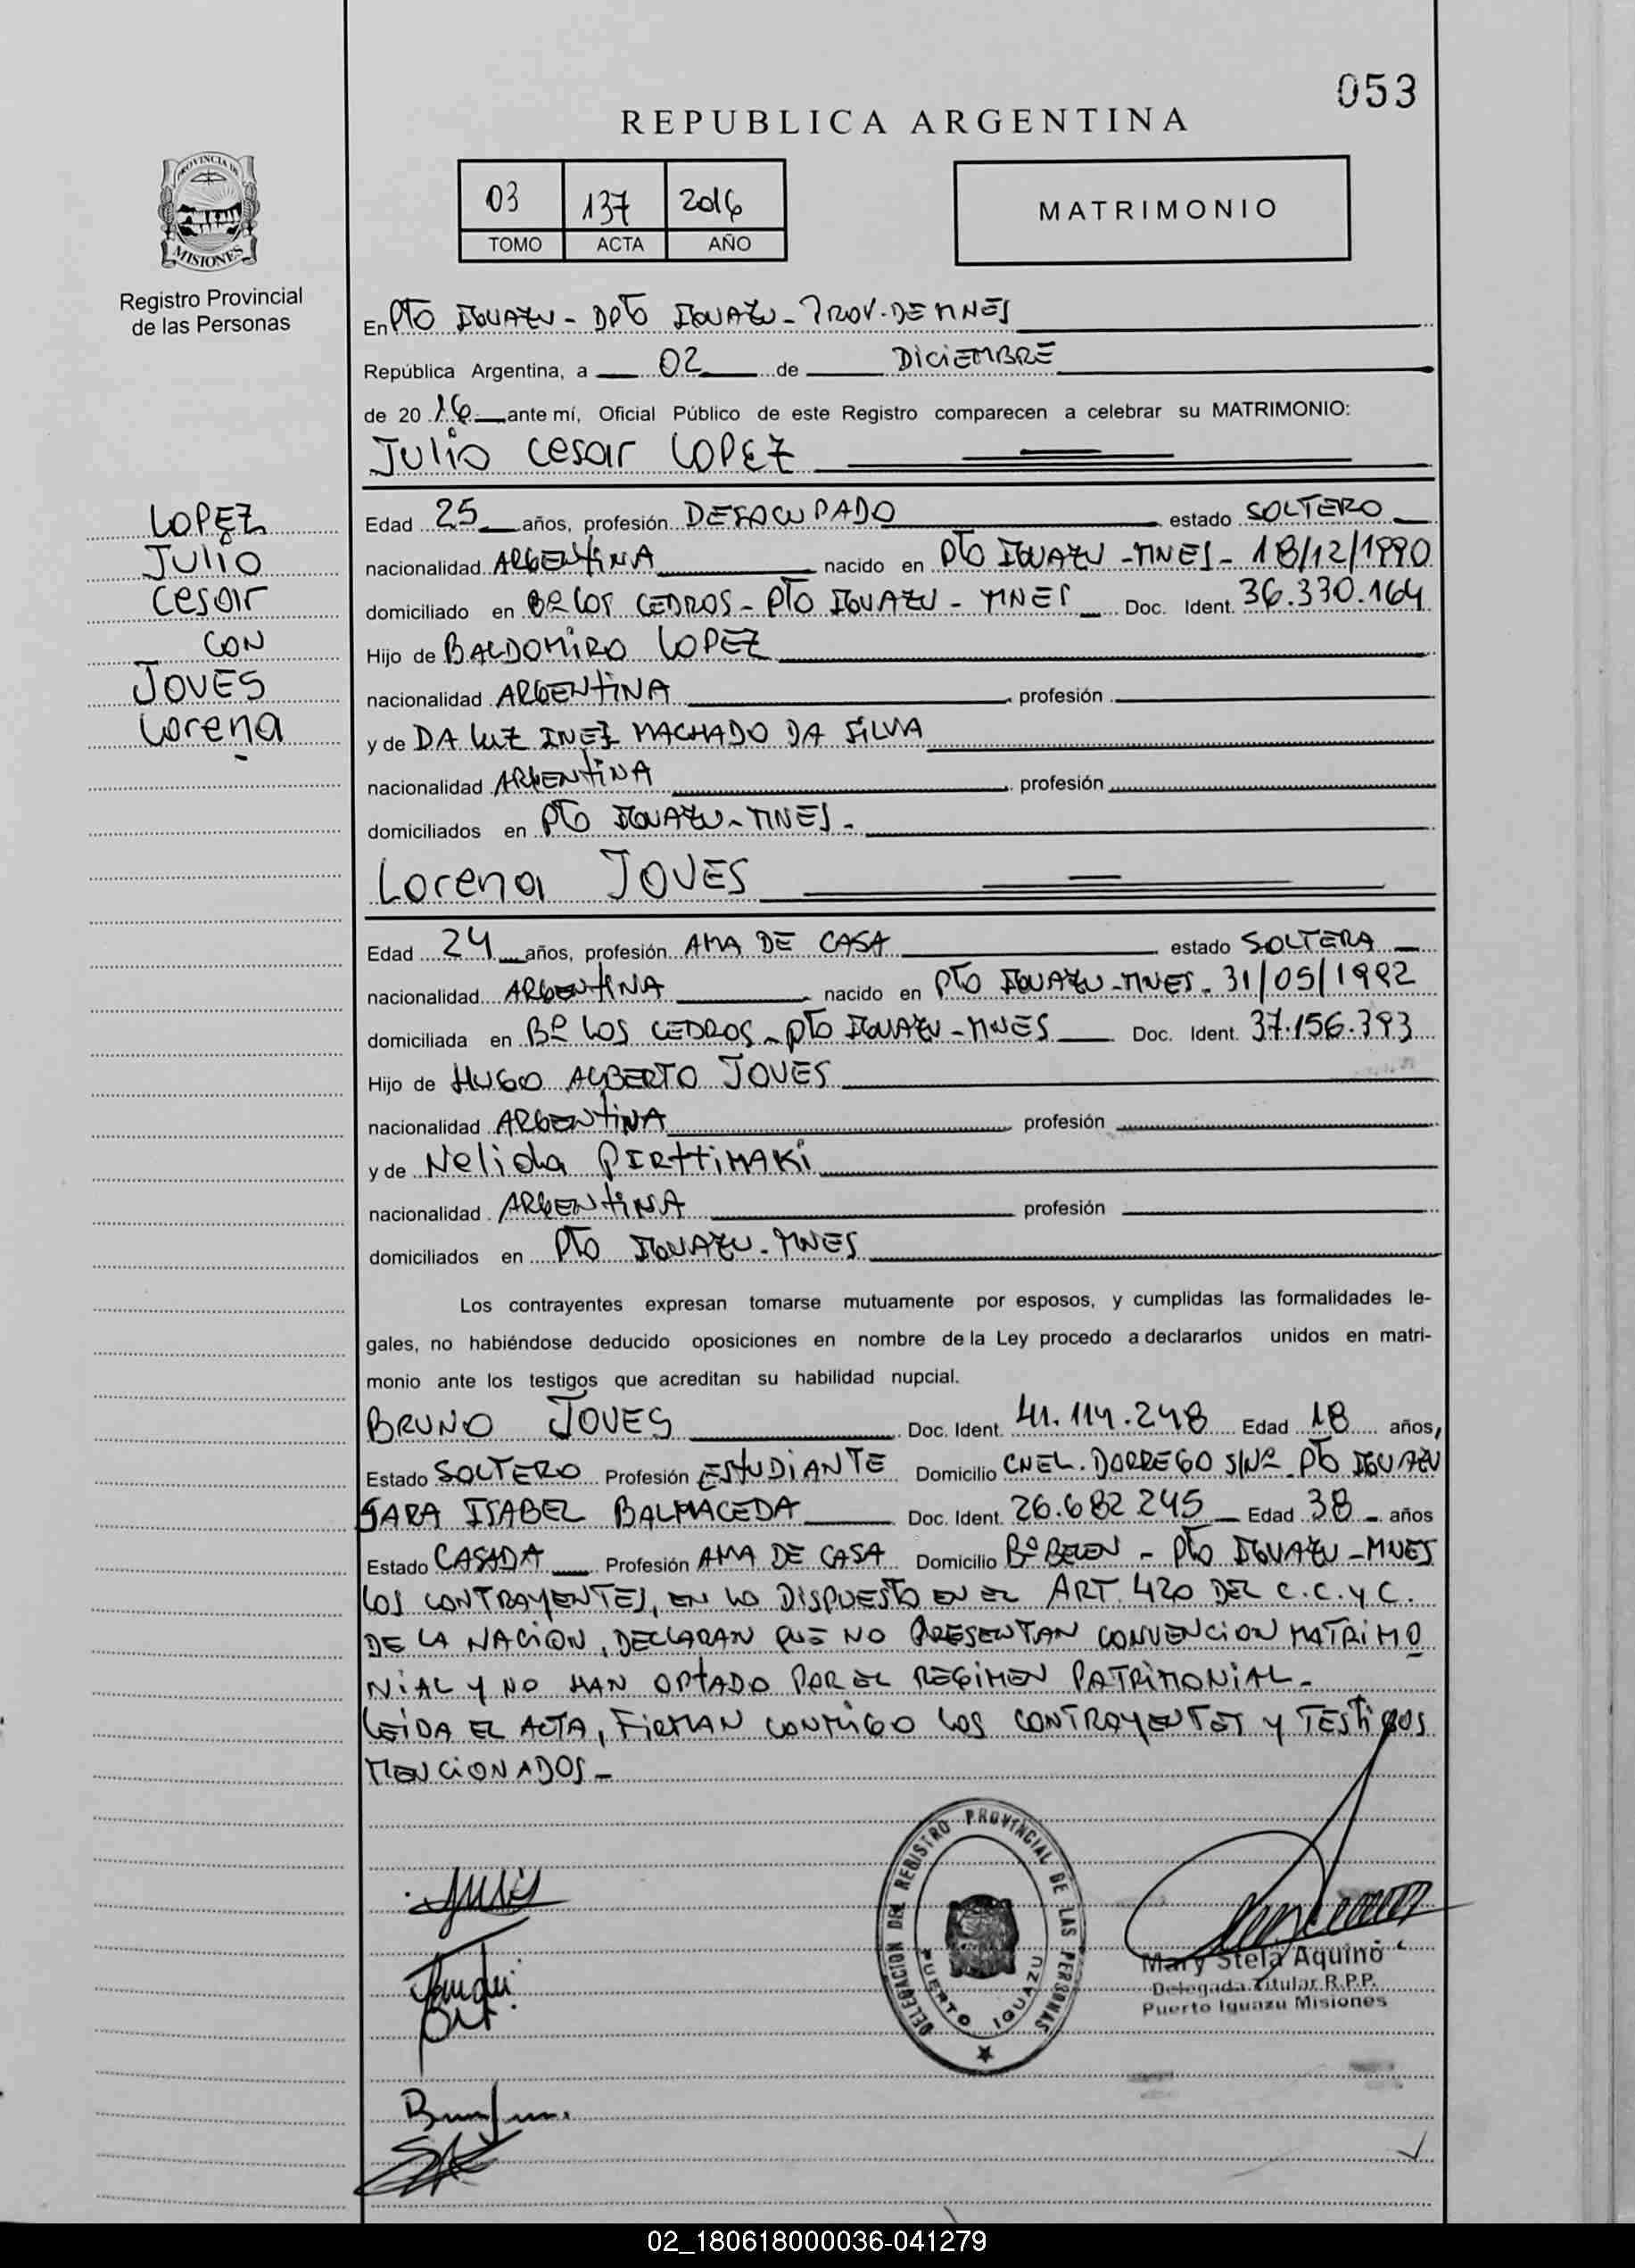 053
REPUBLICA ARGENTINA
03 137 2016
TOMO ACTA AÑO
MATRIMONIO
PROVINCIA DE
MISIONES
Registro Provincial
de las Personas
En PTO IGUAZU - DPTO IGUAZU - PROV. DE MNES
República Argentina, a 02 de DICIEMBRE
de 20 16 ante mí, Oficial Público de este Registro comparecen a celebrar su MATRIMONIO:
Julio Cesar LOPEZ
LOPEZ
Julio
Cesar
CON
JOVES
Lorena
Edad 25 años, profesión DESOCUPADO estado SOLTERO
nacionalidad ARGENTINA nacido en PTO IGUAZU - MNES - 18/12/1990
domiciliado en Bº LOS CEDROS - PTO IGUAZU - MNES Doc. Ident. 36.330.164
Hijo de BALDOMIRO LOPEZ
nacionalidad ARGENTINA profesión
y de DA LUZ INEZ MACHADO DA SILVA
nacionalidad ARGENTINA profesión
domiciliados en PTO IGUAZU - MNES -
Lorena JOVES
Edad 24 años, profesión AMA DE CASA estado SOLTERA
nacionalidad ARGENTINA nacido en PTO IGUAZU - MNES - 31/05/1992
domiciliada en Bº LOS CEDROS - PTO IGUAZU - MNES Doc. Ident. 37.156.393
Hijo de HUGO ALBERTO JOVES
nacionalidad ARGENTINA profesión
y de Nelida PIRTTIMAKI
nacionalidad ARGENTINA profesión
domiciliados en PTO IGUAZU - MNES
Los contrayentes expresan tomarse mutuamente por esposos, y cumplidas las formalidades le-
gales, no habiéndose deducido oposiciones en nombre de la Ley procedo a declararlos unidos en matri-
monio ante los testigos que acreditan su habilidad nupcial.
BRUNO JOVES Doc. Ident. 41.114.248 Edad 18 años,
Estado SOLTERO Profesión ESTUDIANTE Domicilio CNEL. DORREGO S/Nº - PTO IGUAZU
SARA ISABEL BALMACEDA Doc. Ident. 26.682.245 Edad 38 años
Estado CASADA Profesión AMA DE CASA Domicilio Bº BELEN - PTO IGUAZU - MNES
LOS CONTRAYENTES, EN LO DISPUESTO EN EL ART. 420 DEL C.C. Y C.
DE LA NACION, DECLARAN QUE NO PRESENTAN CONVENCION MATRIMO
NIAL Y NO HAN OPTADO POR EL REGIMEN PATRIMONIAL -
LEIDA EL ACTA, FIRMAN CONMIGO LOS CONTRAYENTES Y TESTIGOS
MENCIONADOS -
DELEGACION DEL REGISTRO PROVINCIAL DE LAS PERSONAS
PUERTO IGUAZU
Mary Stela Aquino
Delegada Titular R.P.P.
Puerto Iguazu Misiones
02_180618000036-041279